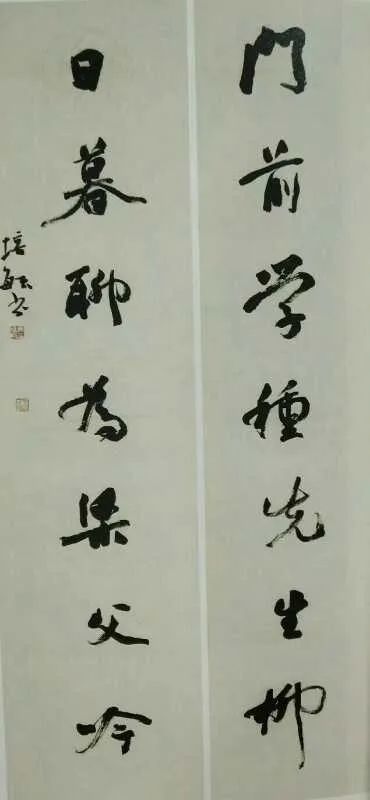 門前学種先生柳
日暮聊為梁父吟
培毓书